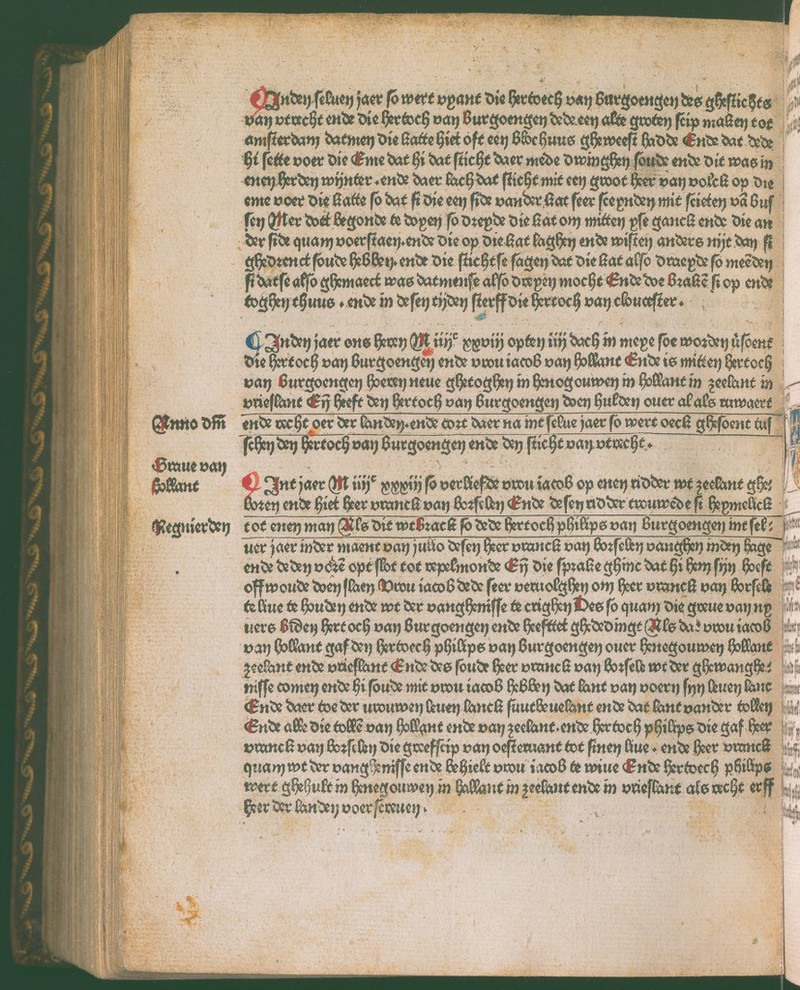 Inden seluen jaer so wert vyant die hertoech van Burgoengen des ghestichts
van vtrecht ende die hertoch van Burgoengen dede een alte groten scip maken tot
amsterdam datmen die katte hiet oft een blochuus gheweest hadde Ende dat dede
hi sette voer die Eme dat hi dat sticht daer mede dwinghen soude ende dit was in
enen herden wijnter. ende daer lach dat sticht mit een groot heer van volck op die
eme voer die katte so dat si die een side vander kat seer sceynden mit scieten vā bus
sen Mer doet begonde te doyen so dreyde die kat om mitten yse ganck ende die an
der side quam voer staen. ende die op die kat laghen ende wisten anders nijt dan si
ghedrenct soude hebben. ende die stichtse sagen dat die kat also draeyde so meēden
si datse also ghemaect was datmense also dreyen mocht Ende doe brakē si op ende
toghen thuus. ende in desen tijden sterff die hertoch van cloucester.
Inden jaer ons heren M iiijᶜ xxviij opten iiij dach in meye soe worden v̄soent
die hertoch van Burgoengen ende vrou iacob van hollant Ende is mitten hertoch
van Burgoengen hoeren neue ghetoghen in henogouwen in hollant in zeelant in
vrieslant Eñ heeft den hertoch van Burgoengen doen hulden ouer al als ruwaert
Anno dm̄ ende recht oer der landen. ende cort daer na int selue jaer so wert oeck ghesoent tus
schen den hertoch van Burgoengen ende den sticht van vtrecht.
Graue van
hollant
Int jaer M iiijᶜ xxxiij so verliefde vrou iacob op enen ridder wt zeelant ghe⸗
boren ende hiet heer vranck van borselen Ende desen ridder trouwede si heymelick
Regnierden tot enen man Als dit wtbrack so dede hertoch philips van Burgoengen int sel⸗
uer jaer inder maent van julio desen heer vranck van borselen vanghen inden hage
ende deden voerē opt slot tot repelmonde Eñ die sprake ghinc dat hi hem sijn hoeft
off woude doen slaen Vrou iacob dede seer veruolghen om heer vranck van borsele
te liue te houden ende wt der vanghenisse te crighen Des so quam die greue van ny
uers Biden hertoch van Burgoengen ende heefttet ghededingt Als dat vrou iacob
van hollant gaf den hertoech philips van Burgoengen ouer henegouwen hollant
zeelant ende vrieslant Ende des soude heer vranck van borsele wt der ghewanghe⸗
nisse comen ende hi soude mit vrou iacob hebben dat lant van voern sijn leuen lanc
Ende daer toe der vrouwen leuen lanck suutbeuelant ende dat lant vander tollen
Ende alle die tollē van hollant ende van zeelant. ende hertoch philips die gaf heer
vranck van borselen die greefscip van oesteruant tot sinen liue. ende heer vranck
quam wt der vanghenisse ende behielt vrou iacob te wiue Ende hertoech philips
wert ghehult in henegouwen in hollant in zeelant ende in vrieslant als recht erff
heer der landen voerscreuen.